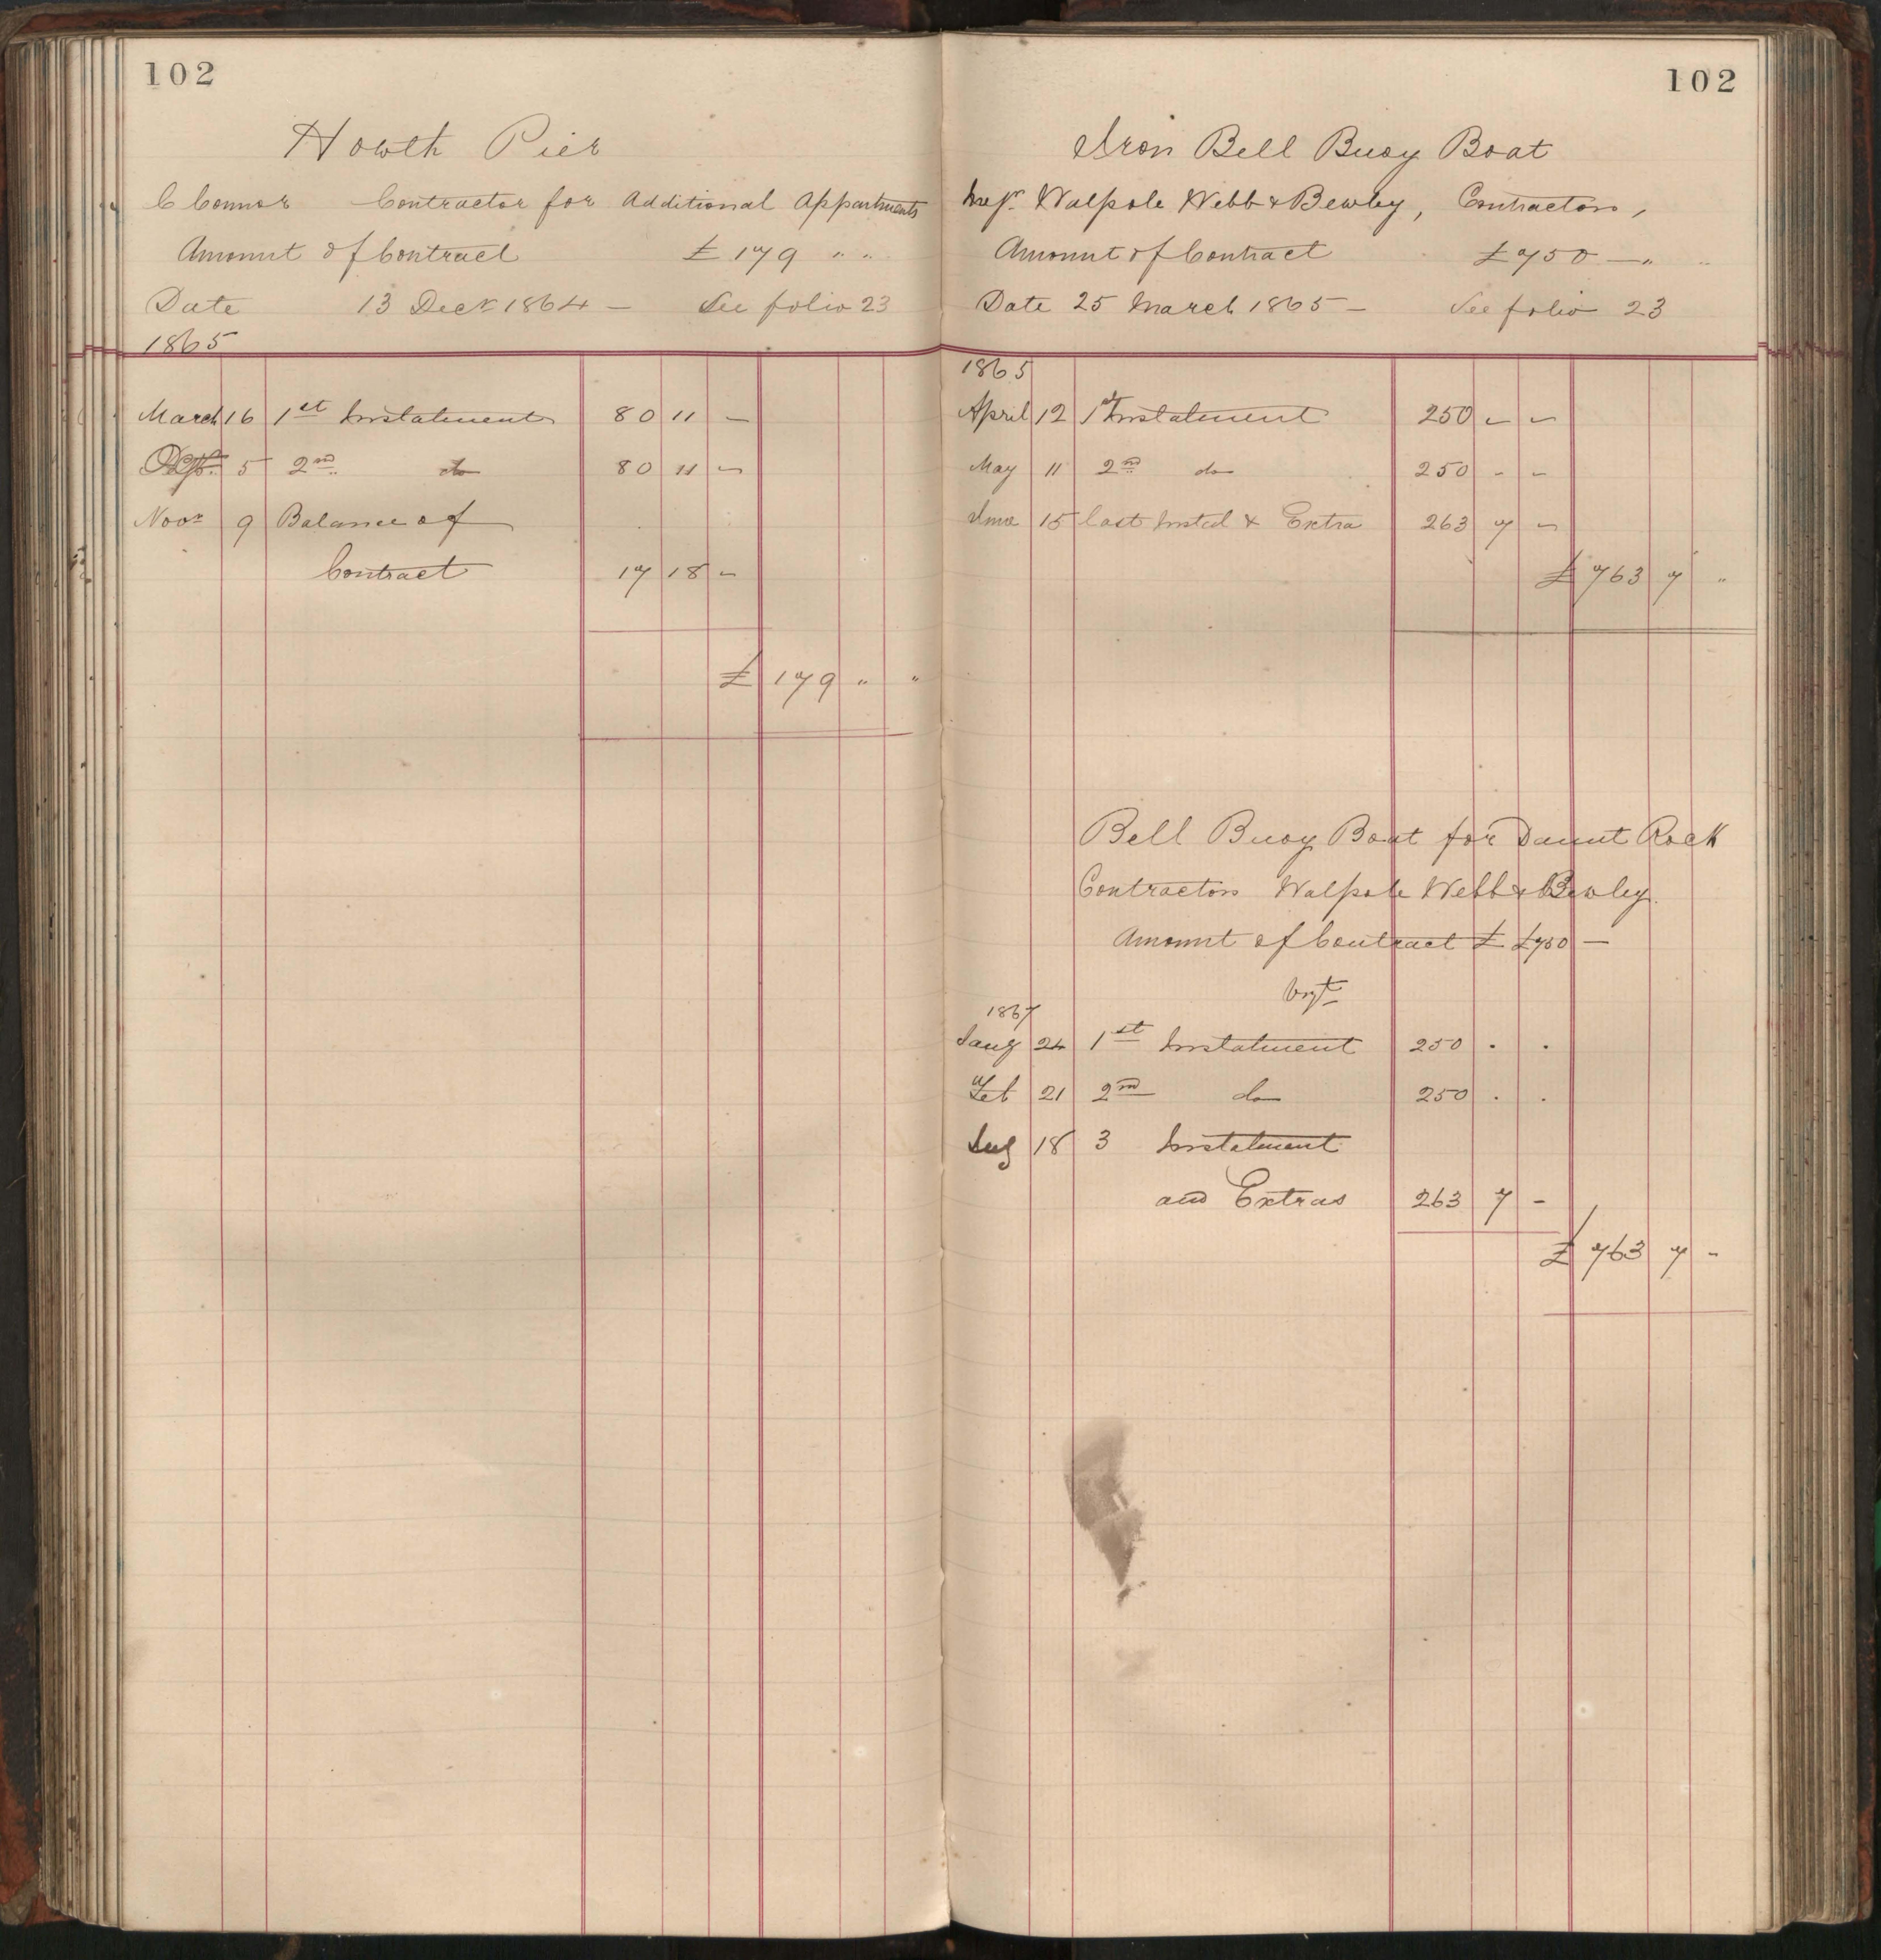 102
Howth Pier
C Connor Contractor for Additional Appartments
Amount of Contract £ 179 " "
Date 13 Decr 1864 — See folio 23
1865
March 16 1st Instalment 80 11 –
5 2nd do 80 11 –
Novr 9 Balance of
Contract 17 18 –
£ 179 " "
102
Iron Bell Buoy Boat
Messrs Walpole Webb & Bewley, Contractors,
Amount of Contract £750 — "
Date 25 March 1865 — See folio 23
1865
April 12 1st Instalment 250 – –
May 11 2nd do 250 – –
June 15 last Insted & Extra 263 7 –
£ 763 7 "
Bell Buoy Boat for Daunt Rock
Contractors Walpole Webb & Bewley.
Amount of Contract £ £750 —
1867
24 1st Instalment 250 . .
Feb 21 2nd do 250 . .
18 3 Instalment
and Extras 263 7 –
£ 763 7 –